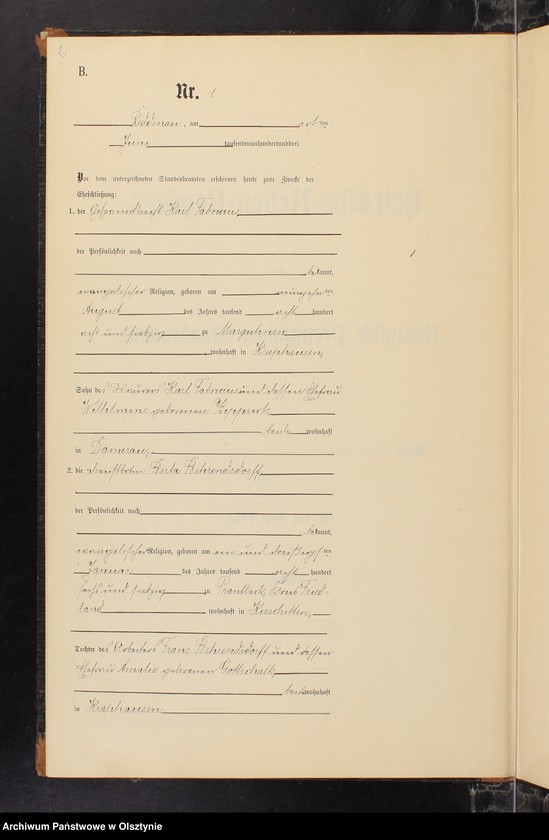 2
B.
Nr. 6
Kiddenau, am ersten
Juni tausendneunhundertunddrei.
Vor dem unterzeichneten Standesbeamten erschienen heute zum Zwecke der
Eheschließung:
1. der Gespannknecht Karl Fabrian,
der Persönlichkeit nach
bekannt,
evangelischer Religion, geboren am neunzehnten
August des Jahres tausend acht hundert
acht und siebzig zu Marguhnen
, wohnhaft in Kraphausen,
Sohn des Maurers Karl Fabrian und dessen Ehefrau
Wilhelmine geborenen
beide wohnhaft
in Damerau,
2. die Dienstbotin Berta Behrendsdorff
der Persönlichkeit nach
bekannt,
evangelischer Religion, geboren am ein und dreißigsten
Januar des Jahres tausend acht hundert
sechs und siebzig zu Prantlack, Kreis Fried-
land, wohnhaft in
Tochter des Arbeiters Franz Behrendsdorff und dessen
Ehefrau Amalie geborenen Gottschalk,
beide wohnhaft
in Kraphausen
Archiwum Państwowe w Olsztynie